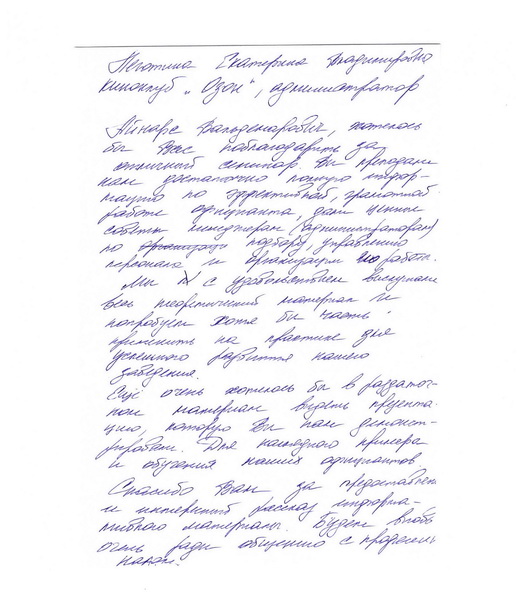 Неготина Екатерина Владимировна
киноклуб „Озон", администратор
Айнарс Вальдемарович, хотелось
бы Вас поблагодарить за
отличный семинар. Вы преподали
нам достаточно полную инфор-
мацию по эффективной, грамотной
работе официанта, дали ценные
советы менеджерам (администраторам)
по подбору, управлению
персонала и организации его работы.
Мы с удовольствием выслушали
весь теоретический материал и
попробуем хотя бы часть
применить на практике для
успешного развития нашего
заведения.
Ещё очень хотелось бы в раздаточ-
ном материале видеть презента-
цию, которую Вы нам демонст-
рировали. Для наглядного примера
и обучения наших официантов.
Спасибо Вам за предоставлен
и интересный рассказ информа-
тивного материала. Будем вновь
очень рады общению с професси